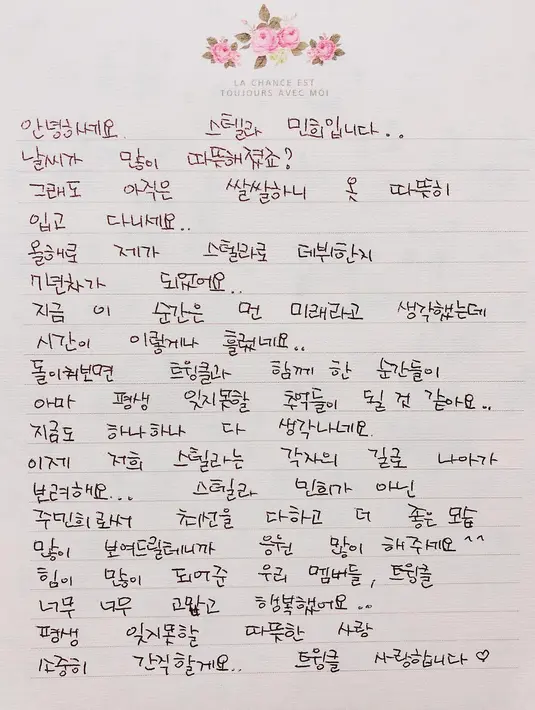 LA CHANCE EST
TOUJOURS AVEC MOI
안녕하세요. 스텔라 민희입니다..
날씨가 많이 따뜻해졌죠?
그래도 아직은 쌀쌀하니 옷 따뜻히
입고 다니세요..
올해로 제가 스텔라로 데뷔한지
7년차가 되었어요..
지금 이 순간은 먼 미래라고 생각했는데
시간이 이렇게나 흘렀네요..
돌이켜보면 트윙클과 함께 한 순간들이
아마 평생 잊지못할 추억들이 될 것 같아요..
지금도 하나하나 다 생각나네요.
이제 저희 스텔라는 각자의 길로 나아가
보려해요... 스텔라 민희가 아닌
주민희로서 최선을 다하고 더 좋은 모습
많이 보여드릴테니까 응원 많이 해주세요^^
힘이 많이 되어준 우리 멤버들, 트윙클
너무 너무 고맙고 행복했어요..
평생 잊지못할 따뜻한 사랑
소중히 간직할게요.. 트윙클 사랑합니다♡